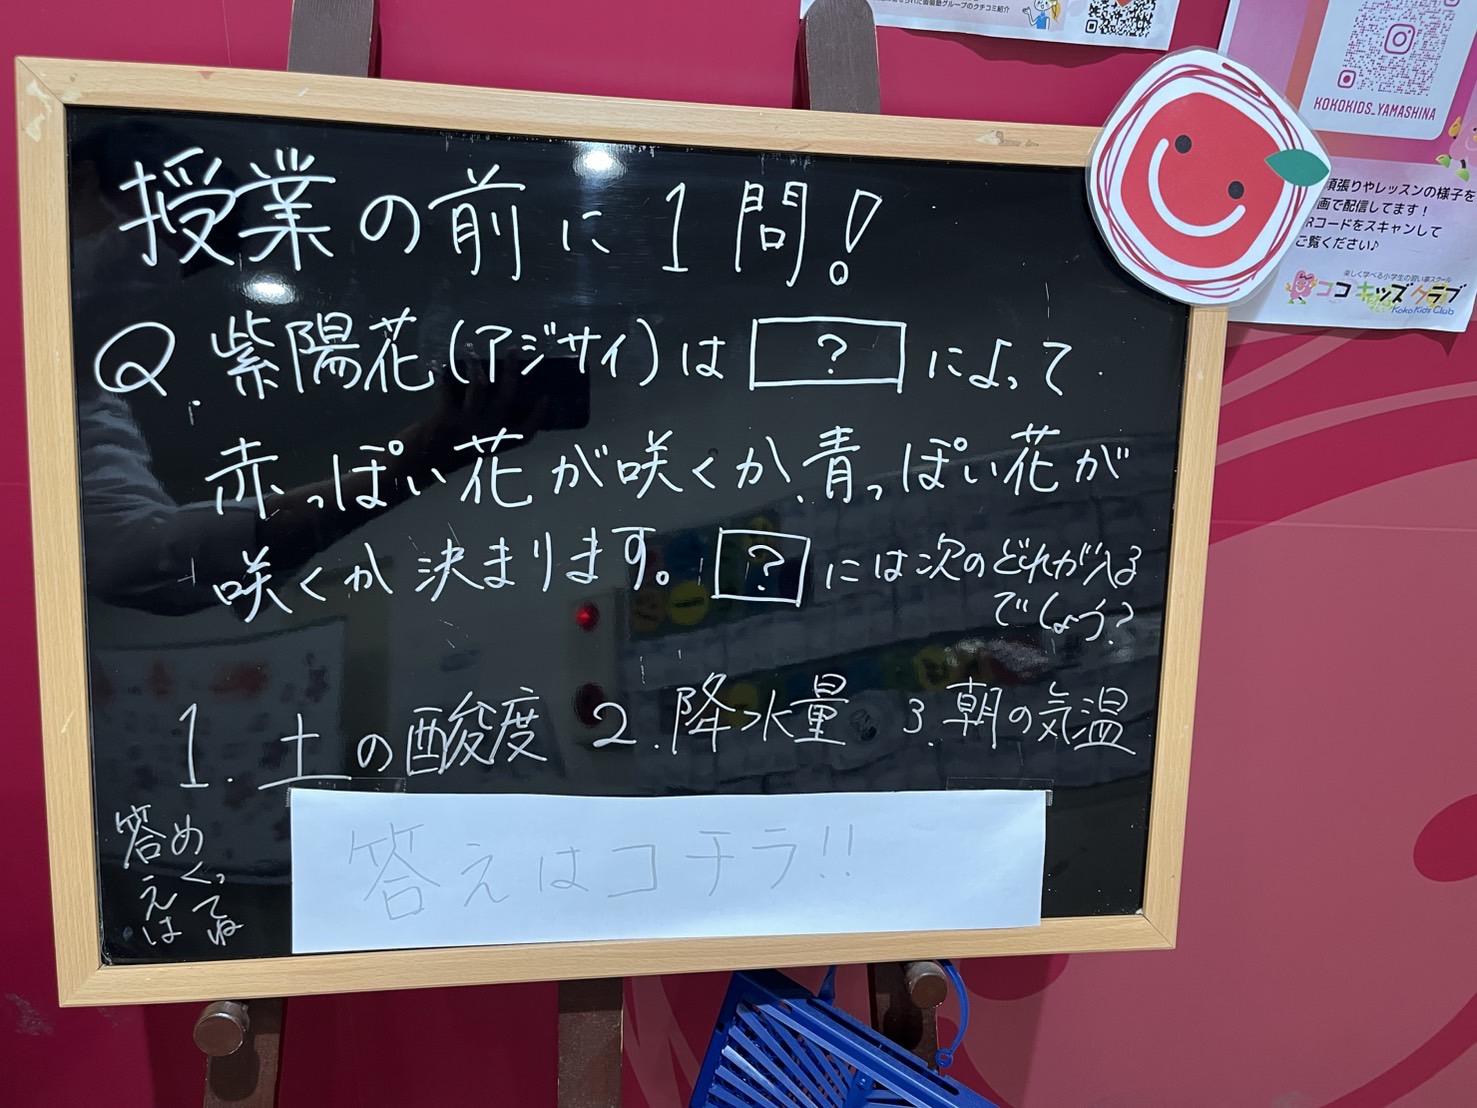 授業の前に1問!
Q. 紫陽花(アジサイ)は ? によって
赤っぽい花が咲くか、青っぽい花が
咲くか決まります。 ? には次のどれが入る
でしょう?
1. 土の酸度 2. 降水量 3. 朝の気温
答えは
めくってね
答えはコチラ!!
グループのクチコミ紹介
KOKOKIDS_YAMASHINA
頑張りやレッスンの様子を
画で配信してます!
Rコードをスキャンして
ご覧ください♪
楽しく学べる小学生の習い事スクール
ココキッズクラブ
KokoKids Club